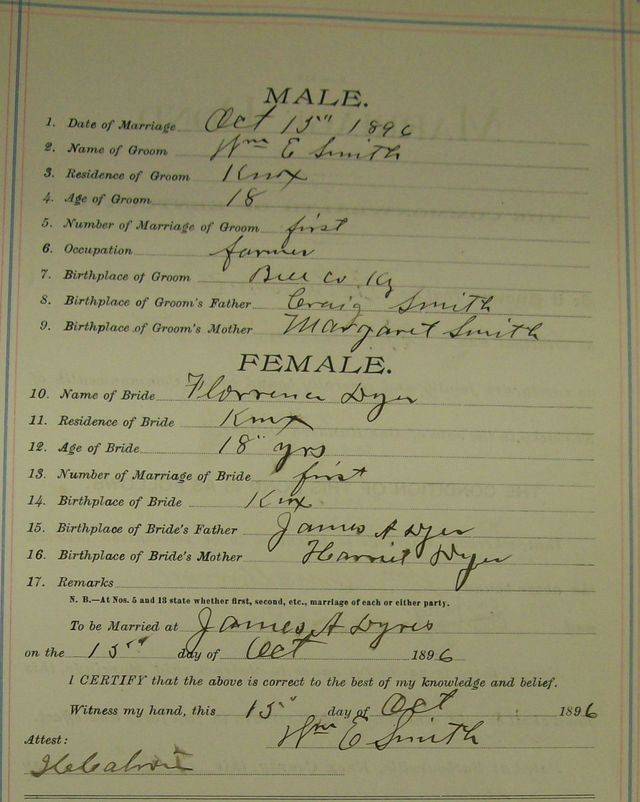 MALE.
1. Date of Marriage Oct 15" 1896
2. Name of Groom Wm E Smith
3. Residence of Groom Knox
4. Age of Groom 18
5. Number of Marriage of Groom first
6. Occupation farmer
7. Birthplace of Groom Bell Co. Ky
8. Birthplace of Groom's Father Craig Smith
9. Birthplace of Groom's Mother Margaret Smith
FEMALE.
10. Name of Bride Florrence Dyer
11. Residence of Bride Knox
12. Age of Bride 18" yrs
13. Number of Marriage of Bride first
14. Birthplace of Bride Knox
15. Birthplace of Bride's Father James A Dyer
16. Birthplace of Bride's Mother Harriet Dyer
17. Remarks
N. B.—At Nos. 5 and 13 state whether first, second, etc., marriage of each or either party.
To be Married at James A Dyres
on the 15" day of Oct 1896
I CERTIFY that the above is correct to the best of my knowledge and belief.
Witness my hand, this 15" day of Oct 1896
Wm E Smith
Attest: